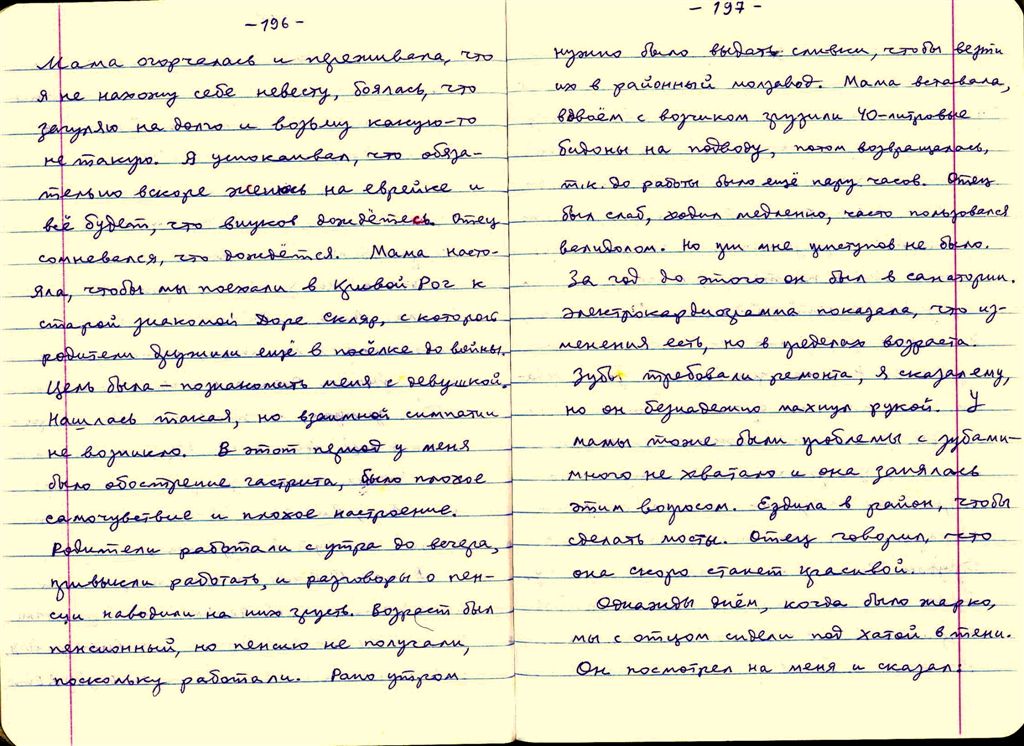 -196-
Мама огорчалась и переживала, что
я не нахожу себе невесту, боялась, что
загуляю на долго и возьму какую-то
не такую. Я успокаивал, что обяза-
тельно вскоре женюсь на еврейке и
всё будет, что внуков дождётесь. Отец
сомневался, что дождётся. Мама насто-
яла, чтобы мы поехали в Кривой Рог к
старой знакомой Доре Скляр, с которой
родители дружили ещё в посёлке до войны.
Цель была – познакомить меня с девушкой.
Нашлась такая, но взаимной симпатии
не возникло. В этот период у меня
было обострение гастрита, было плохое
самочувствие и плохое настроение.
Родители работали с утра до вечера,
привыкли работать, и разговоры о пен-
сии наводили на них грусть. Возраст был
пенсионный, но пенсию не получали,
поскольку работали. Рано утром
-197-
нужно было выдать сливки, чтобы везти
их в районный молзавод. Мама вставала,
вдвоём с возчиком грузили 40-литровые
бидоны на подводу, потом возвращалась,
т.к. до работы было ещё пару часов. Отец
был слаб, ходил медленно, часто пользовался
валидолом. Но при мне приступов не было.
За год до этого он был в санатории.
Электрокардиограмма показала, что из-
менения есть, но в пределах возраста.
Зубы требовали ремонта, я сказал ему,
но он безнадежно махнул рукой. У
мамы тоже были проблемы с зубами –
много не хватало и она занялась
этим вопросом. Ездила в район, чтобы
сделать мосты. Отец говорил, что
она скоро станет красивой...
Однажды днём, когда было жарко,
мы с отцом сидели под хатой в тени.
Он посмотрел на меня и сказал: